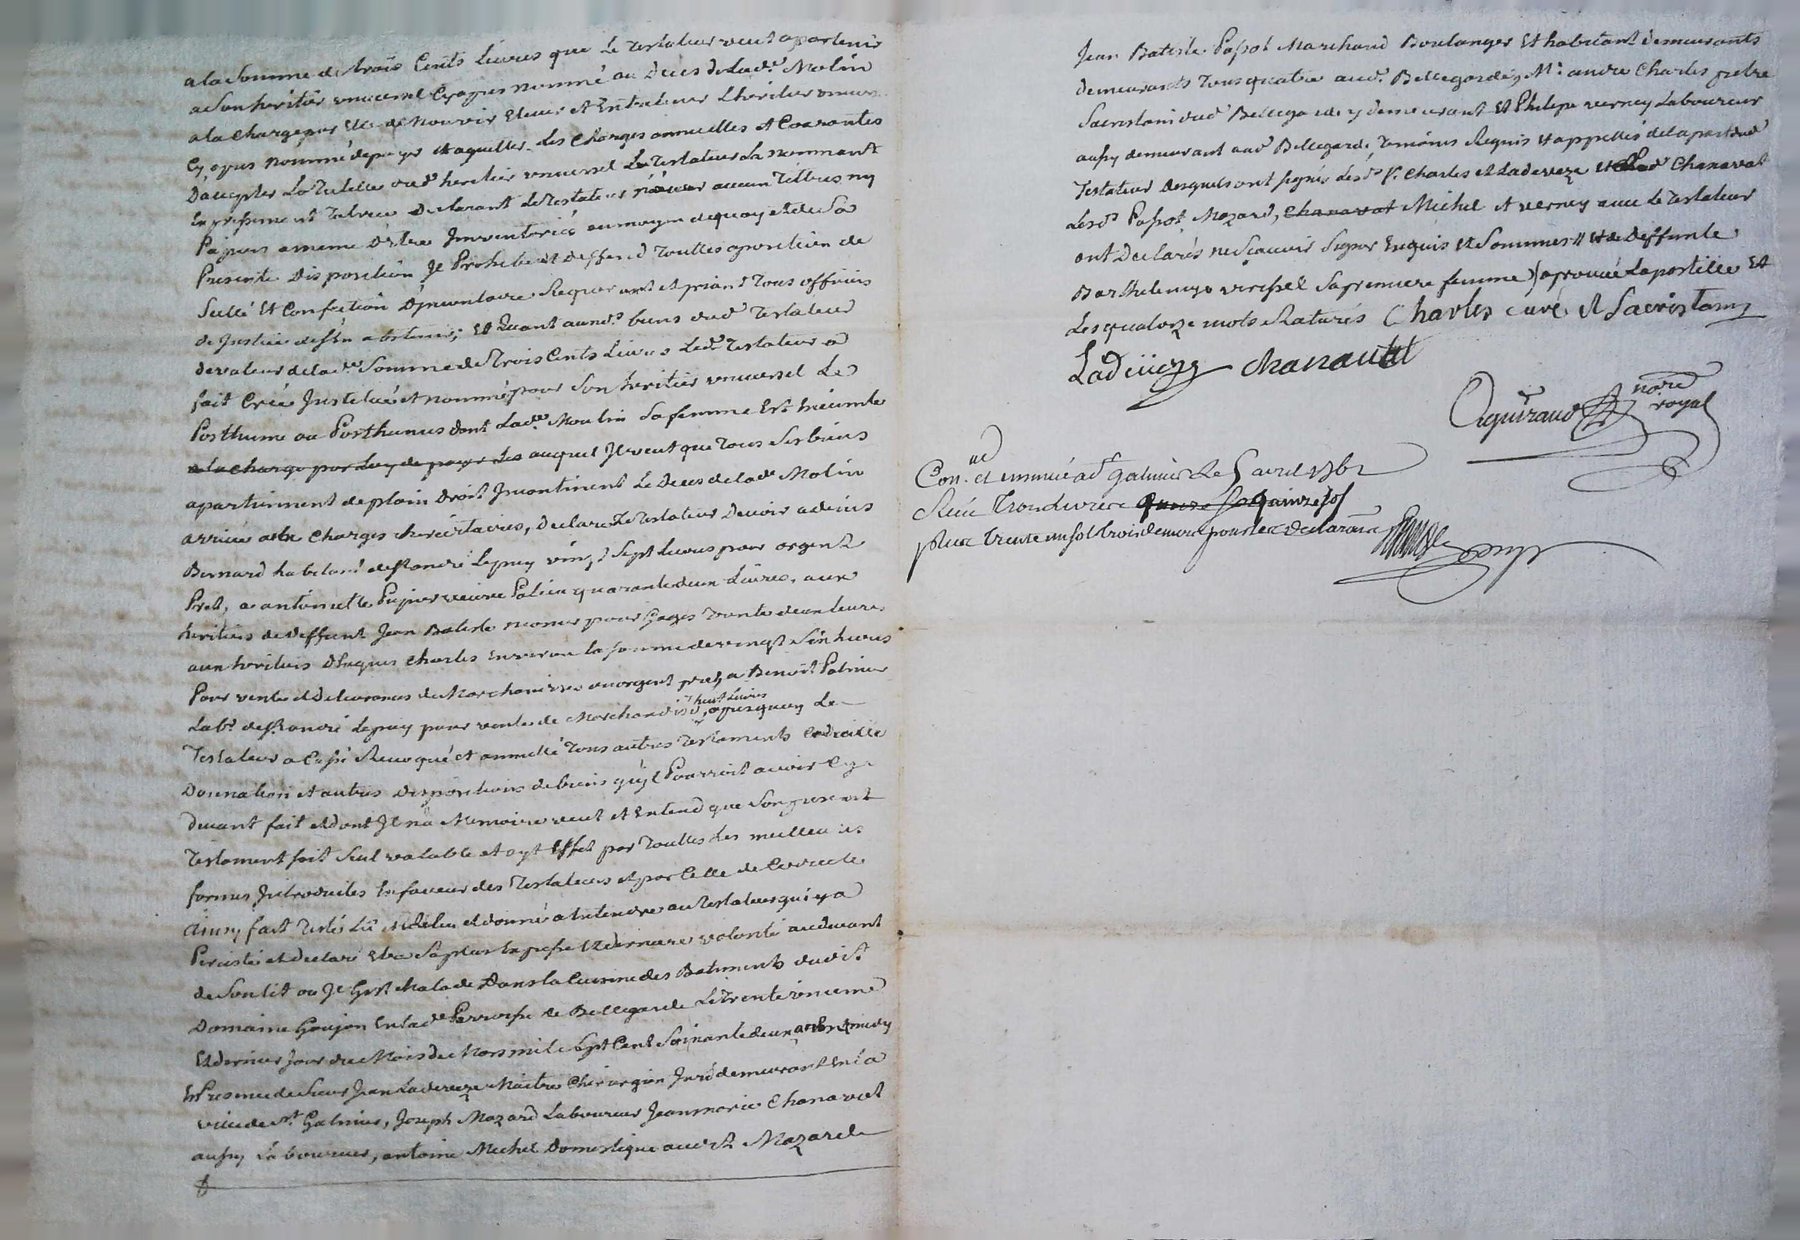 a la Somme de trois Cents Livres que Le Testateur veut apartenir
a Son heritier universel Cy apres nommé au Deces de Lade Molin
a la charge par Elle de Nourrir Elever et Entretenir Lheritier univer
Cy apres nommé de payer et aquitter Les Charges annuelles et Courantes
Daccepter La Tutelle dud heritier universel Le Testateur La nommant
Expressement Tutrice Declarant Le Testateur navoir aucun Tiltres ny
Papiers a meme D'etre Inventoriés au moyen de quoy et de Sa
Presente Disposition Il Prohibe et deffend Touttes aposition de
Scellé Et Confection D'inventaire Requerant et priant Tous officiers
de Justice de S'en abstenir; et Quant aux biens dud Testateur
de valeur de lade Somme de Trois Cents Livres Led Testateur a
fait Créé Institué et nommé pour Son heritier universel Le
Posthume ou Posthumes dont Lade Moulin Sa femme Est Enceinte
a la charge par Luy de payer Les auquel Il veut que Tous Ses biens
apartiennent de plain Droit Incontinent Le Deces de lade Molin
arrivé aux Charges hereditaires, Declare Le Testateur Devoir a
Bernard habitant de St André Lepuy vingt Sept Livres pour argent
Pret, a antoinette Pupier veuve quarante deux Livres, aux
heritiers de Deffunt Jean Batiste pour Gages Trente deux Livres
aux heritiers Charles Environ la Somme de vingt Six Livres
Pour vente et Delivrances de Marchandises ou argent pret, a Benoit Palmier
Labr de St André Lepuy pour vente de Marchandises huit Livres, apres quoy Le
Testateur a Cassé Revoqué et annullé Tous autres Testaments Codicille
Donnation et autres Dispositions de biens qu'il Pourroit avoir Cy
Devant fait et dont Il na Memoire veut et Entend que Son present
Testament Soit Seul valable et ayt Effet par Touttes Les meilleures
formes Introduites En faveur des Testateurs et par Celle de Codicile
Ainsy fait Testé Lu et relu et donné a Entendre au Testateur qui y a
Persisté et declaré Etre Sa plus Expresse Et derniere volonté au devant
de Son lit ou Il Git Malade Dans la Cuisine des Batiments dudit
Domaine Goujon En lade Parroisse de Bellegarde Le Trente unieme
Et dernier Jour du Mois de Mars mil Sept Cent Soixante deux avant midy
En Presence de Sieur Jean Ladeveze Maitre Chirurgien Juré demeurant En la
ville de St Galmier, Joseph Mazard Laboureur Jean marie Chanavat
aussy Laboureur, antoine Michel Domestique audit Mazard
Jean Batiste Passot Marchand Boulanger Et habitant demeurants
demeurants Tous quatre aud Bellegarde, Mr andre Charles pretre
Sacristain dud Bellegarde y demeurant Et Philipe verney Laboureur
aussy demeurant aud Bellegarde Temoins Requis et appellés de la part dud
Testateur desquels ont signés Led Sr Charles et Ladeveze et Led Chanavat
Lesd Passot, Mazard, Chanavat Michel et verney avec Le Testateur
ont Declarés ne Scavoir Signer Enquis et Sommés // et de Deffunte
Barthelemye Sa premiere femme) aprouvé Lapostille Et
Les quatorze mots Raturés Charles curé et Sacristain
Ladeveze Chanavat
Aguiraud nore
royal
Con. et insinué a St Galmier Le 5 avril 1762
Reçu Trois livres quinze sols